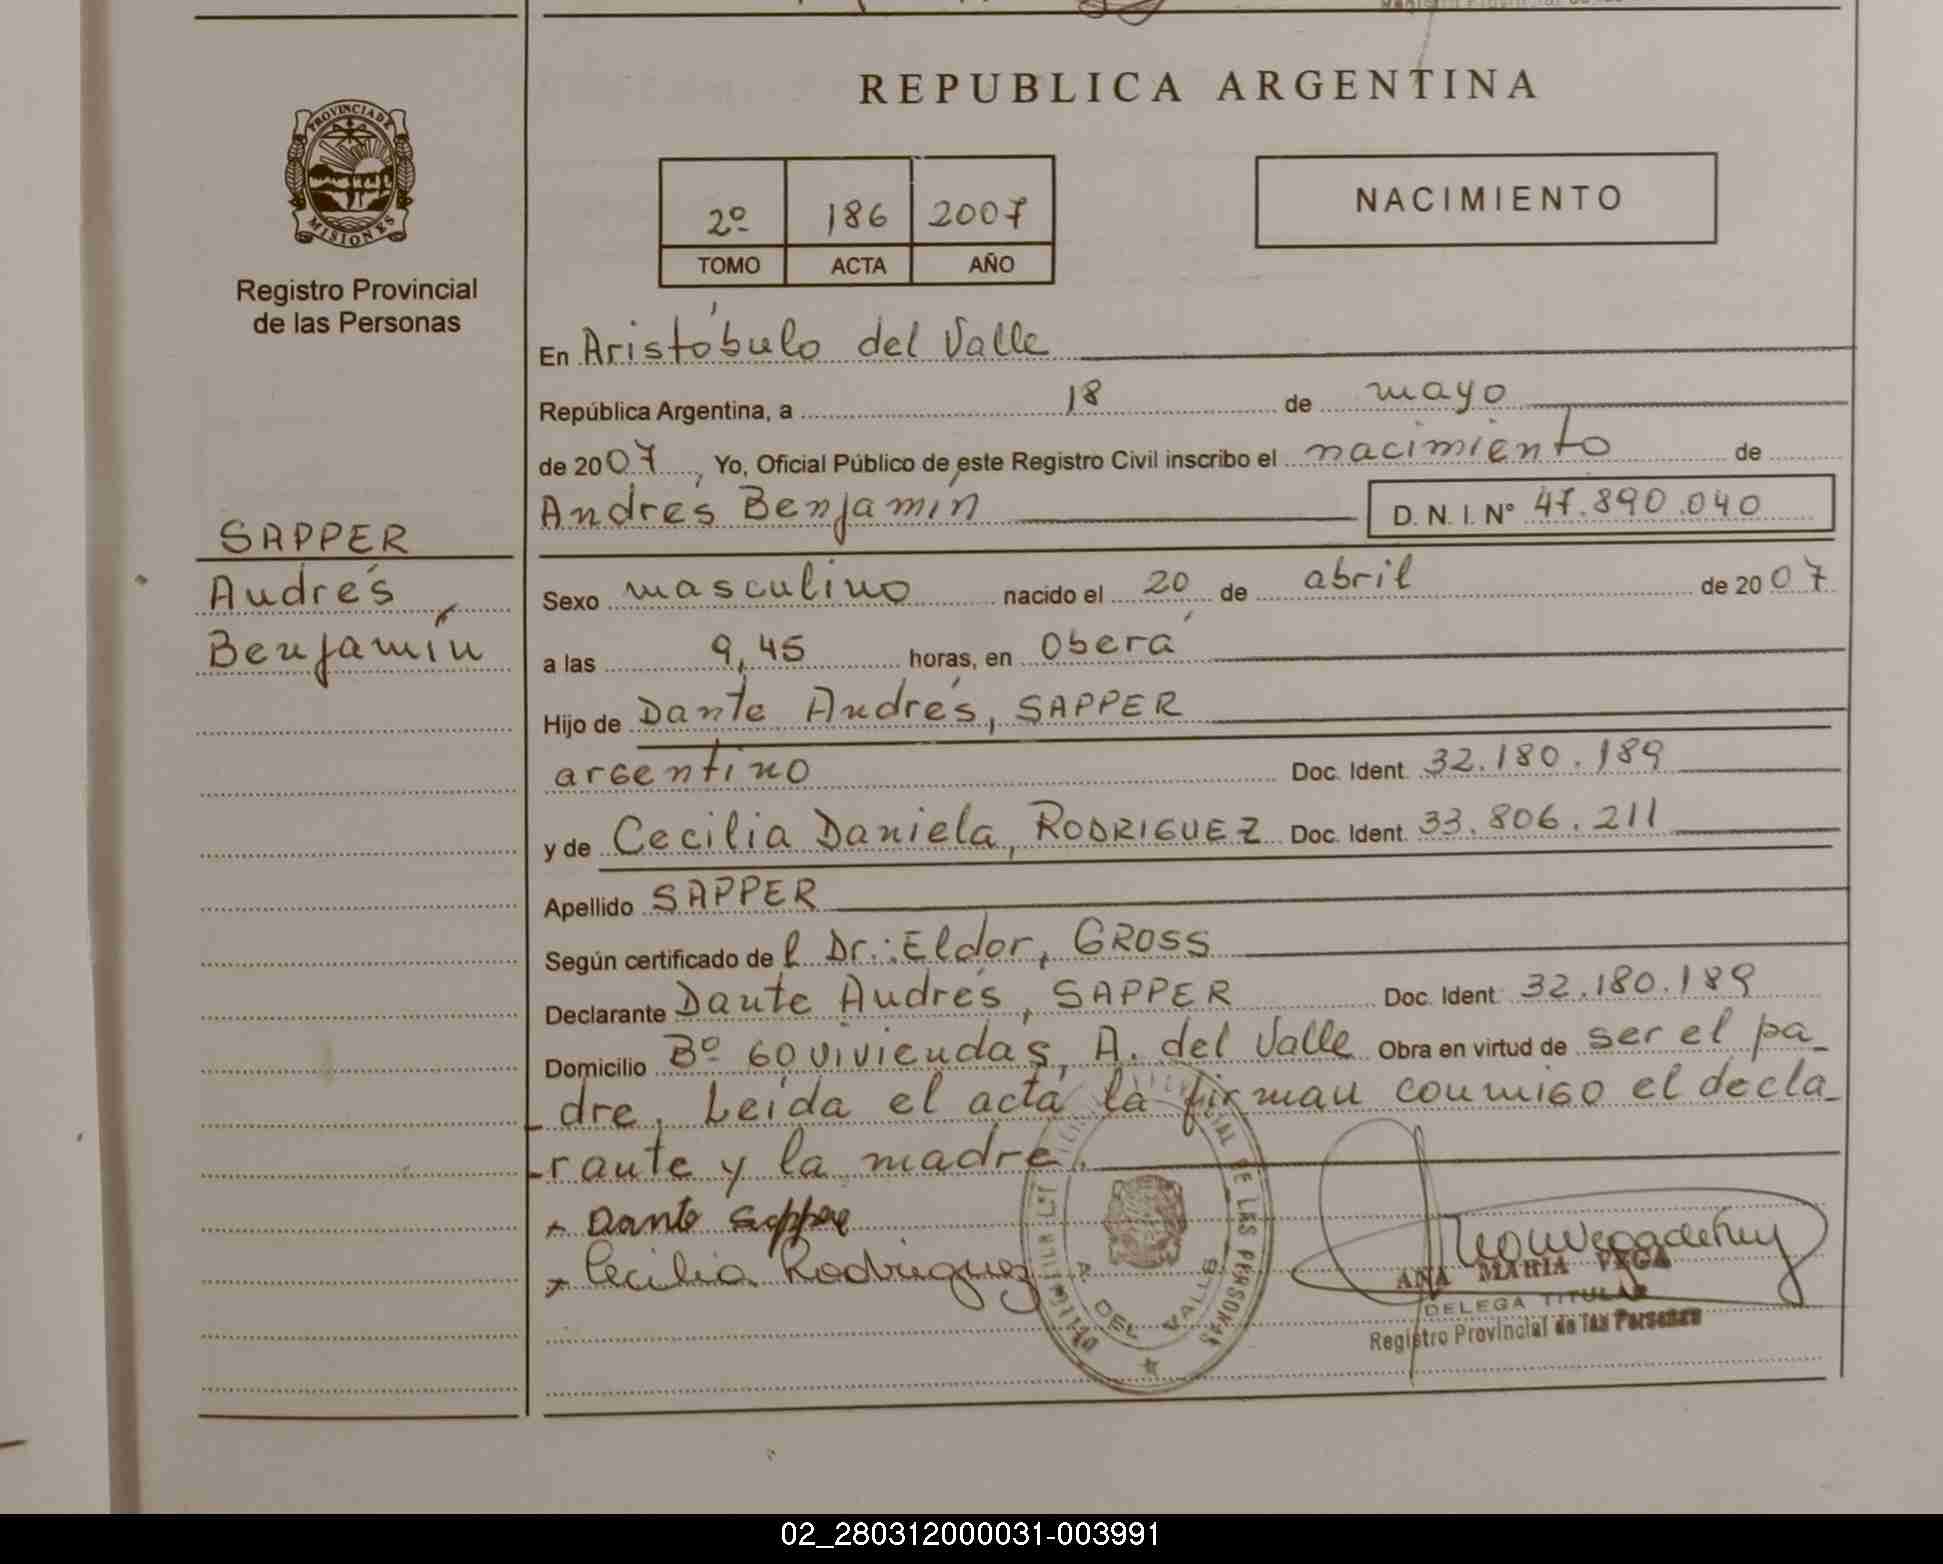 REPUBLICA ARGENTINA
PROVINCIA DE
MISIONES
Registro Provincial
de las Personas
2º 186 2007
TOMO ACTA AÑO
NACIMIENTO
En Aristóbulo del Valle
República Argentina, a 18 de mayo
de 2007, Yo, Oficial Público de este Registro Civil inscribo el nacimiento de
Andrés Benjamín D. N. I. Nº 47.890.040
SAPPER
Andrés
Benjamín
Sexo masculino nacido el 20 de abril de 2007
a las 9,45 horas, en Oberá
Hijo de Dante Andrés, SAPPER
argentino Doc. Ident. 32.180.189
y de Cecilia Daniela, RODRIGUEZ Doc. Ident. 33.806.211
Apellido SAPPER
Según certificado del Dr.: Eldor, GROSS
Declarante Dante Andrés, SAPPER Doc. Ident. 32.180.189
Domicilio Bº 60 viviendas, A. del Valle Obra en virtud de ser el pa_
_dre. Leída el acta la firman conmigo el decla_
_rante y la madre.
Dante Sapper
Cecilia Rodriguez
DE LAS PERSONAS
A. DEL VALLE
ANA MARIA VEGA
DELEGA TITULAR
Registro Provincial de las Personas
02_280312000031-003991